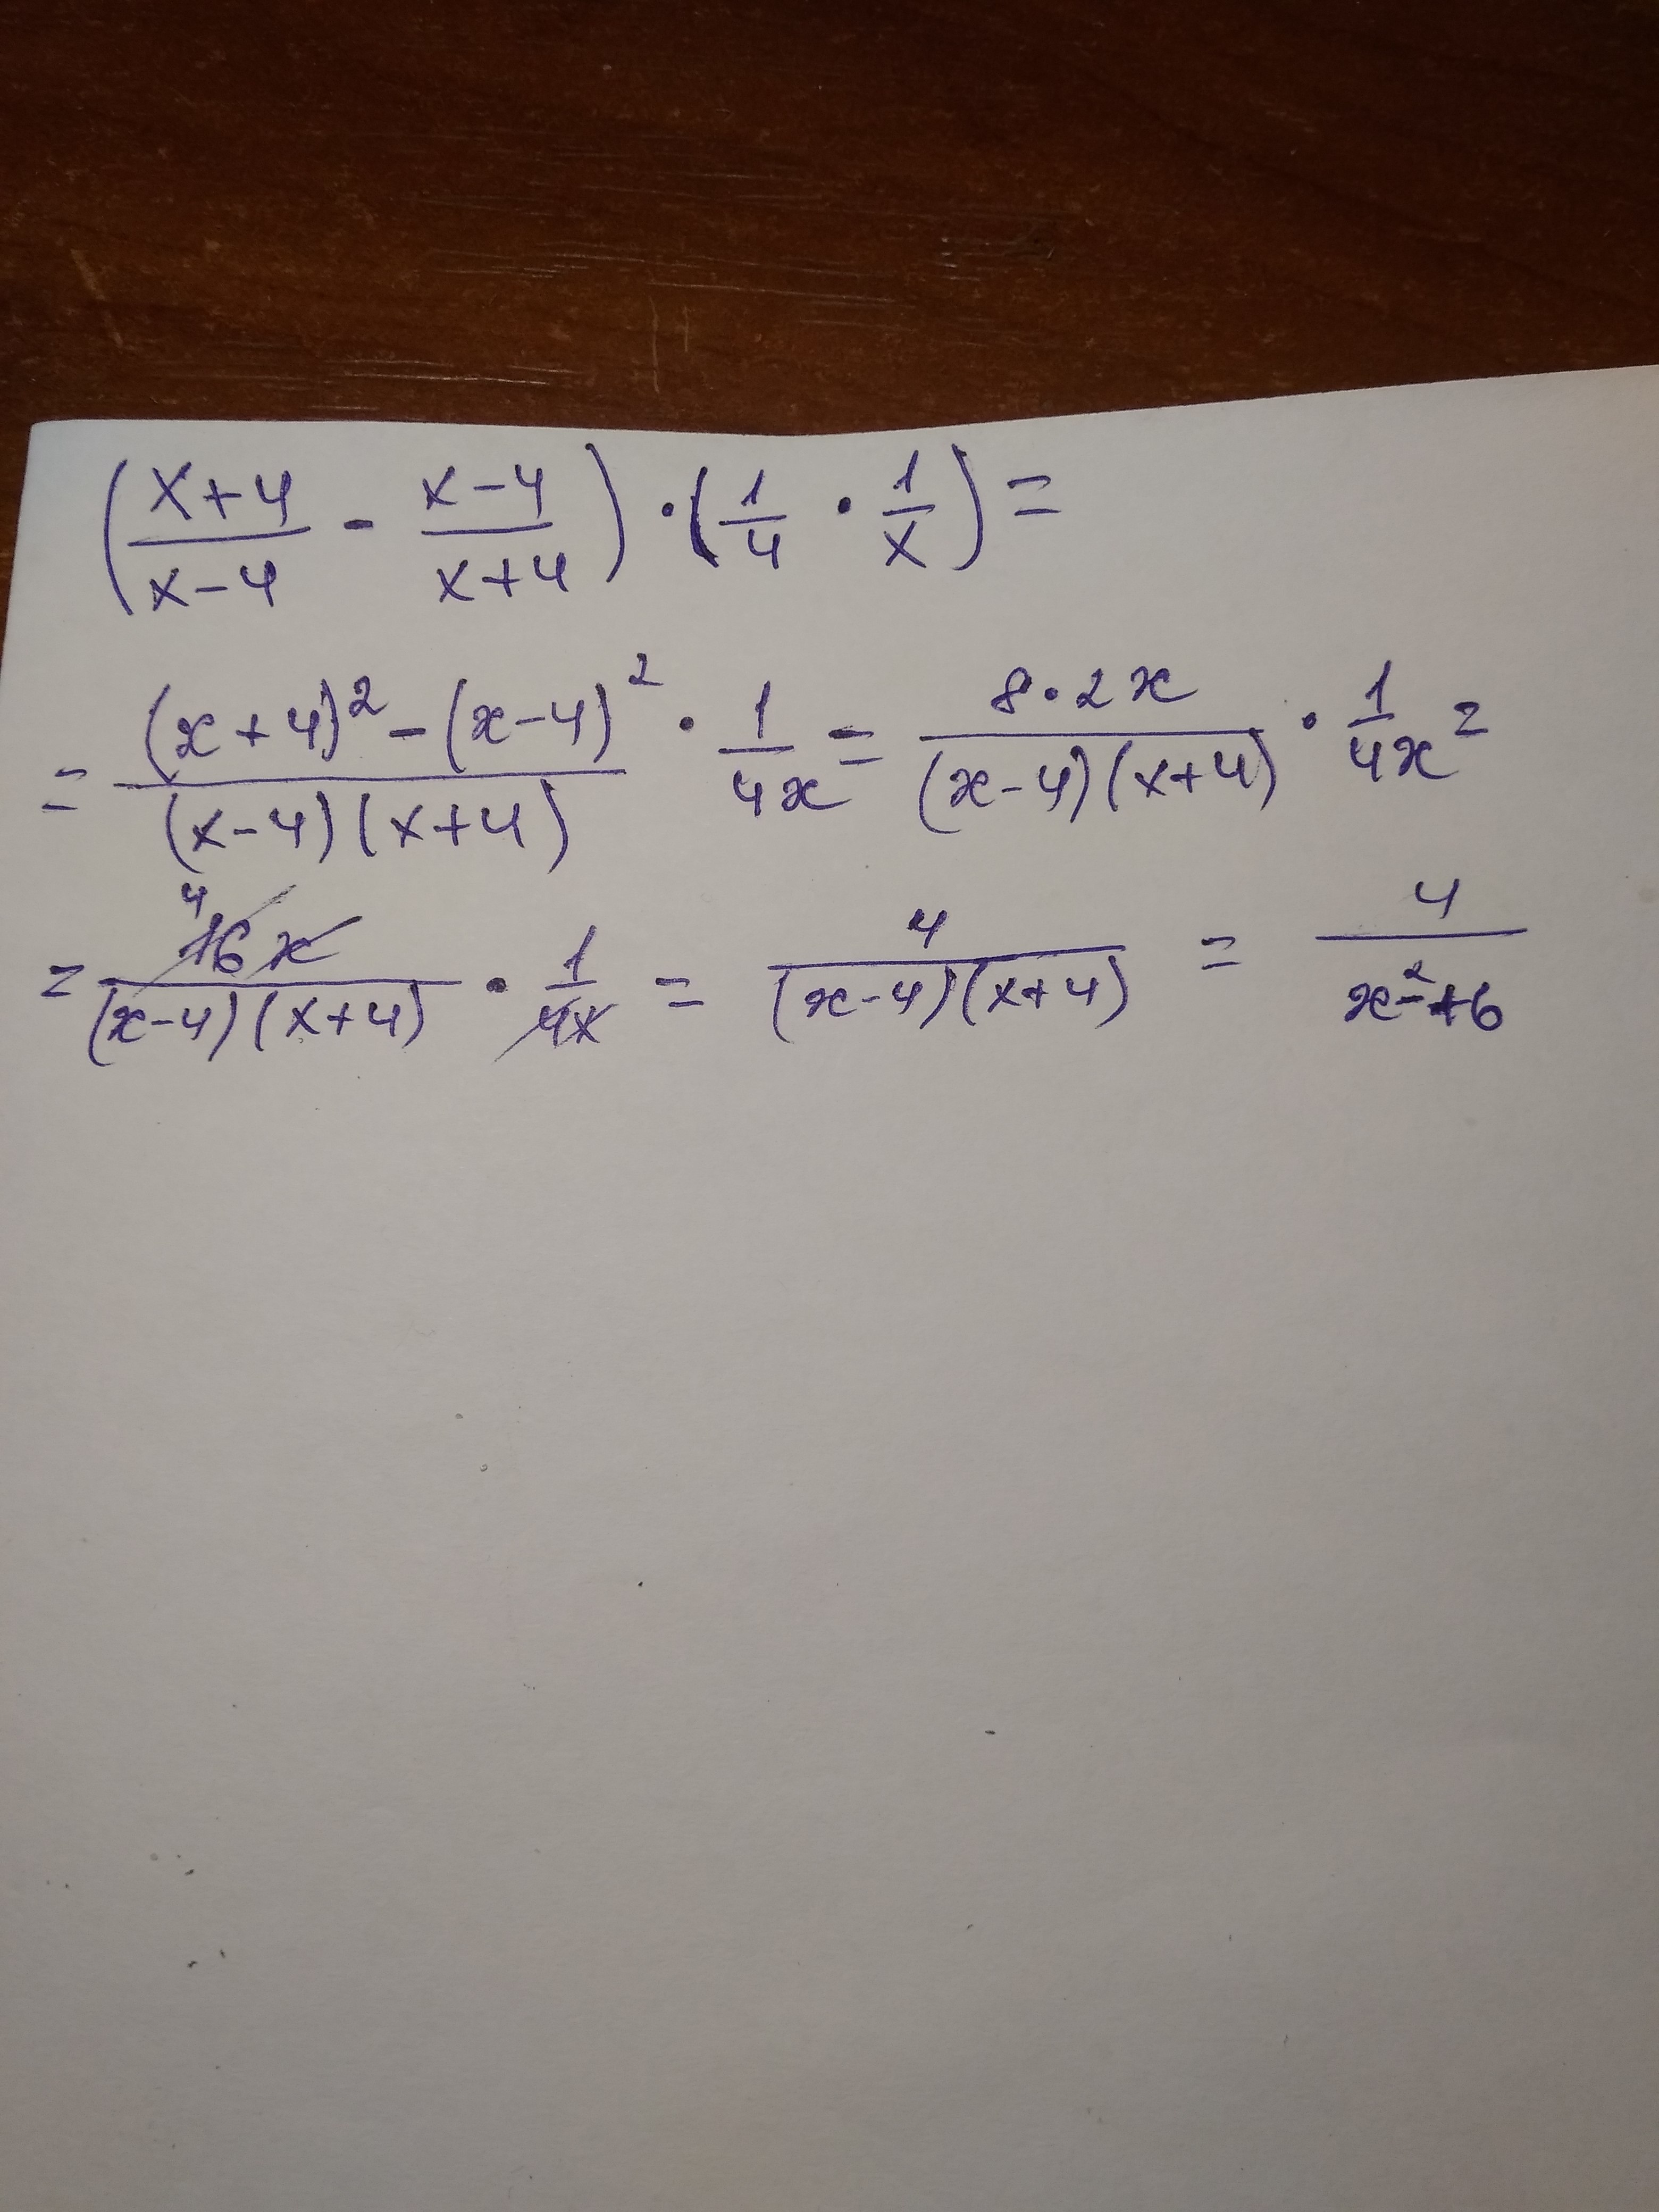 (x+4/x-4 - x-4/x+4) · (1/4 · 1/x) =
= (x+4)² - (x-4)² / (x-4)(x+4) · 1/4x = 8·2x / (x-4)(x+4) · 1/4x =
= 4 16x / (x-4)(x+4) · 1/4x = 4 / (x-4)(x+4) = 4 / x²-16